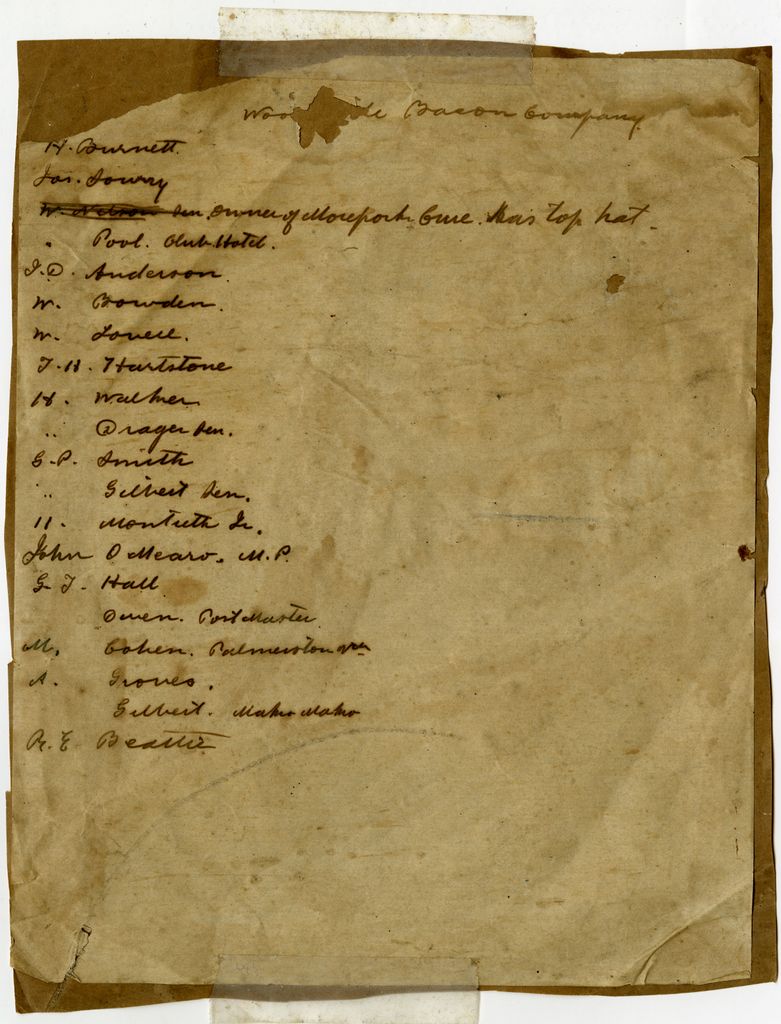 Woo de Bacon Company.
H. Burnett.
Jas. Sowry
W. Nelson Sen. Owner of Morepork Cure. Has top hat.
" Pool. Club Hotel.
J.D. Anderson.
W. Bowden.
W. Lovell.
J.H. Hartstone
H. Walker
" Drager Sen.
G.P. Smith
" Gilbert Sen.
H. Montieth Jr.
John O Meara. M.P.
G. J. Hall
Owen. Post Master
M. Cohen. Palmerston Nth
A. Groves.
Gilbert. Mako Mako
R.E. Beattie